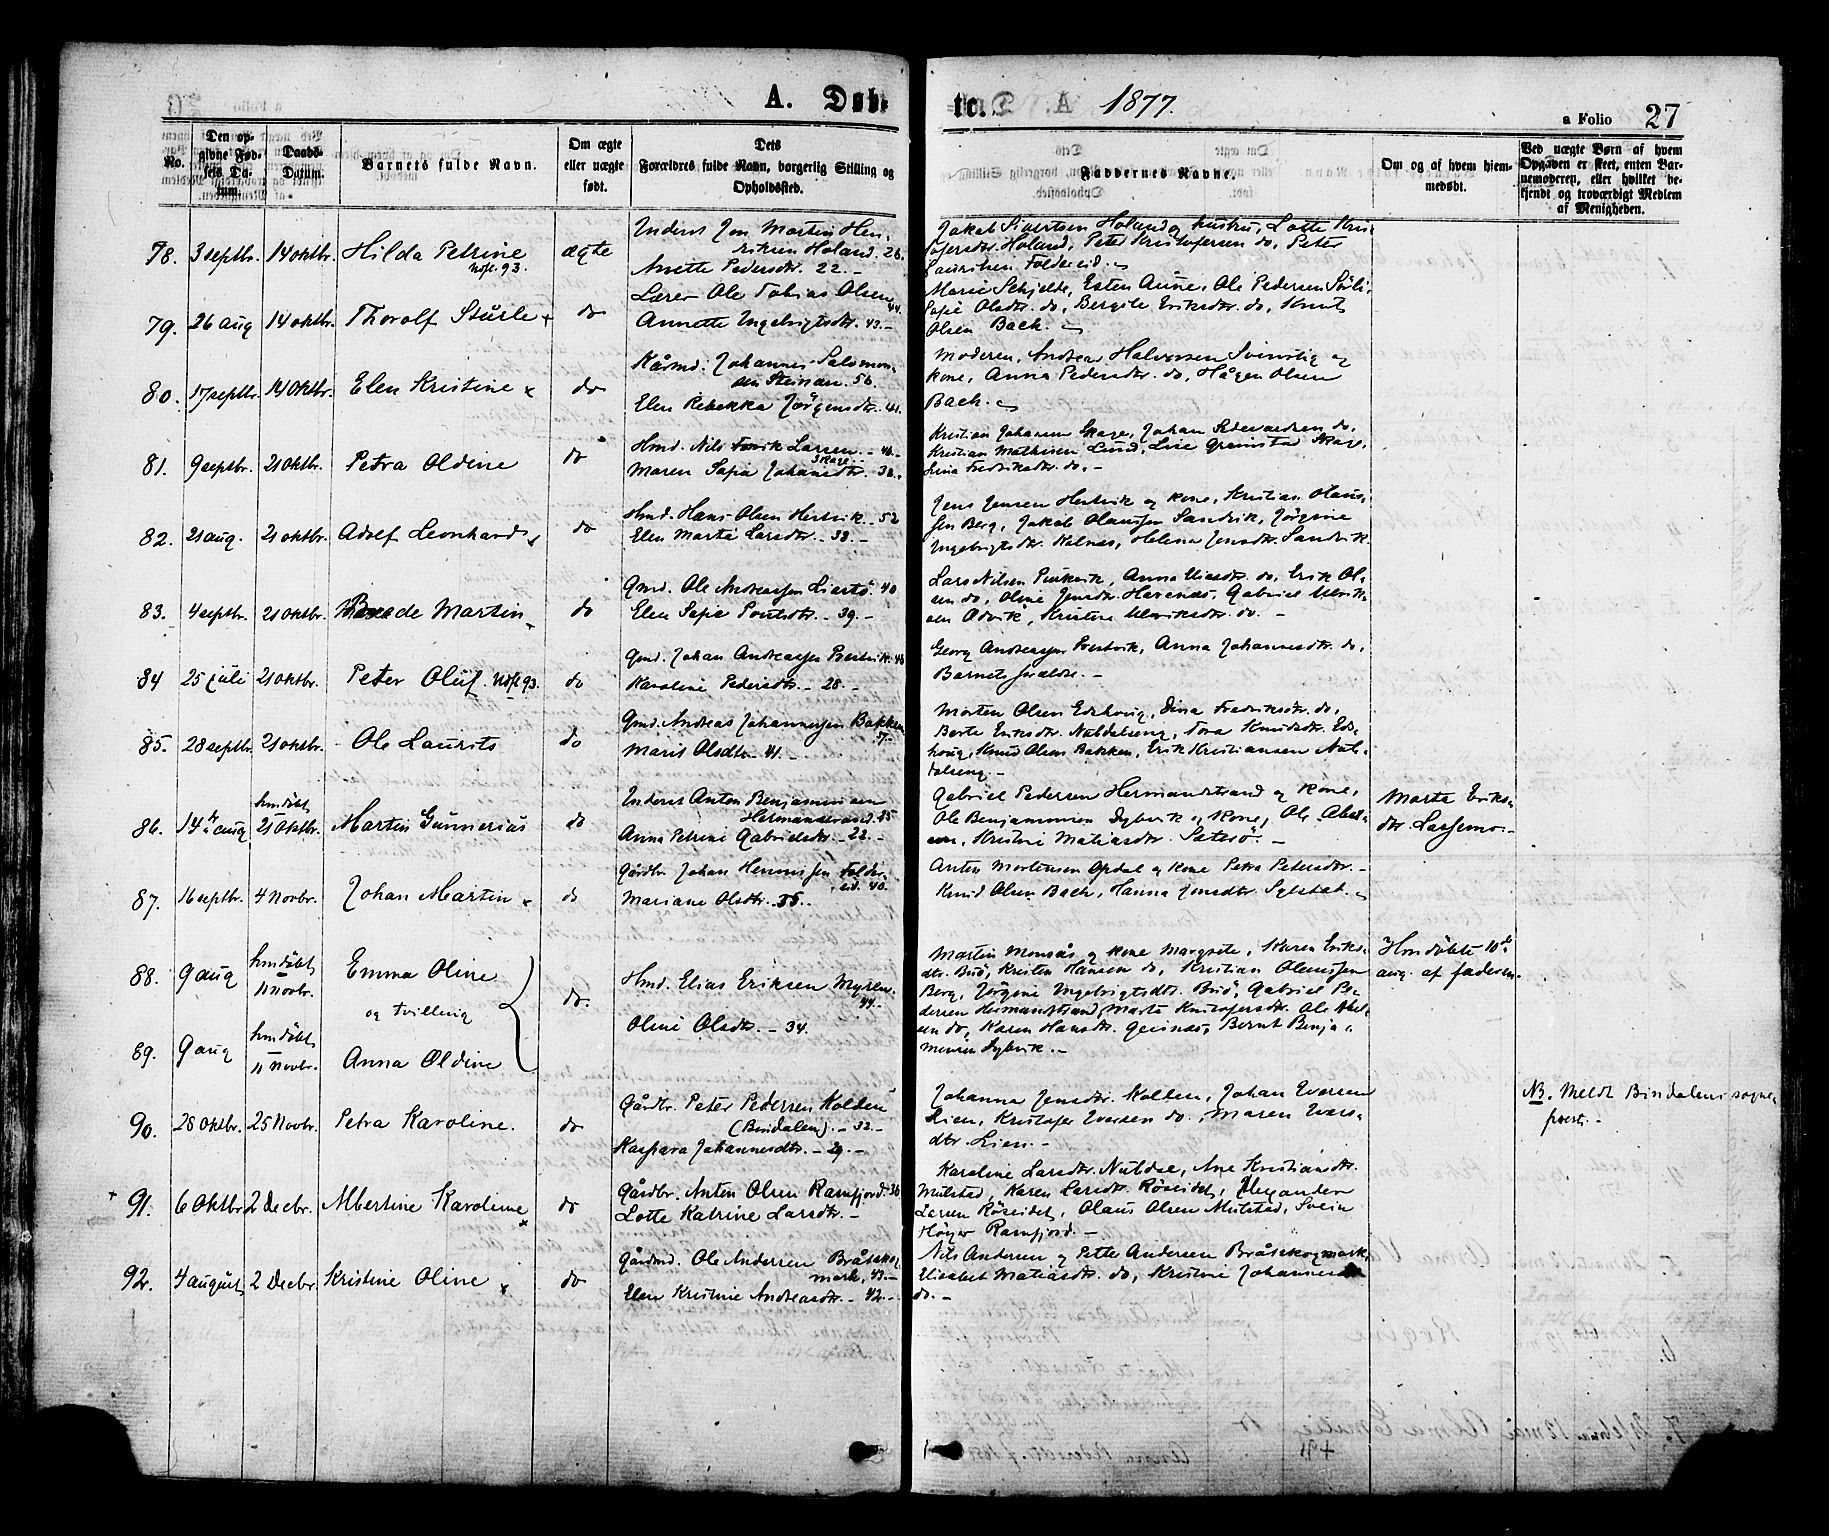 A. Døb-
te. A 1877.
a Folio 27
No.
Den op-
givne Fød-
sels Da-
tum.
Daabs-
Datum.
Barnets fulde Navn.
Om ægte
eller uægte
født.
Dets
Forældres fulde Navn, borgerlig Stilling og
Opholdssted.
Faddernes Navne.
Om og af hvem hjem-
medøbt.
Ved uægte Børn af hvem
Opgaven er skeet, enten Bar-
nemoderen, eller hvilket be-
kjendt og troværdigt Medlem
af Menigheden.
78. 3 septbr. 14 oktbr. Hilda Petrine ægte
Inderst Jon Martin Hen-
riksen Holand. 28.
Anette Pedersdtr. 22. -
Jakob Sivertsen Holand og hustru, Lotte Kris-
tofersdtr. Holand, Peter Kristofersen do, Peter
Lauritsen Foldereid. -
79. 26 aug 14 oktbr. Thorolf Sturle do
Lærer Ole Tobias Olsen 44.
Annette Ingebrigtsdtr. 43. -
Marie Schjelde, Esten Aune, Ole Pedersen
Sofie Olsdtr. do, Bergite Eriksdtr. do, Knut
Olsen Bach. -
80. 17 septbr. 14 oktbr. Elen Kristine do
Johannes Salomon-
sen 56.
Elen Rebekka Jørgensdtr. 41.
Moderen, Andreas Halvorsen og
kone, Anna Pedersdtr. do, Hågen Olsen
Bach. -
81. 9 septbr. 21 oktbr. Petra Oldine do
Hmd. Nils Larsen - 46. -
Skage.
Maren Sofie Johansdtr. 38.
Kristian Johansen Skage, Johan do,
Kristian Mathisen Lund, Lise Skage,
Fredriksdtr. do. -
82. 21 aug. 21 oktbr. Adolf Leonhard do
Hmd. Hans Olsen Hestvik - 52
Elen Marta Larsdtr. - 38. -
Jens Jensen Hestvik og kone, Kristian Olaus-
sen Berg, Jakob Olaussen Sandvik, Jørgine
Ingebrigtsdtr. Kalnes, Helena Jensdtr. Sandvik
83. 4 septbr. 21 oktbr. Martin do
Gmd. Ole Andreassen 40
Elen Sofie - 39. -
Lars Nilsen Anna do, Erik Ol-
sen do, Oline Jensdtr. Gabriel Ulrik-
sen Odvik, Kristine Ulriksdtr. do. -
84 25 juli 21 oktbr. Peter Oluf. do
Gmd. Johan Andreassen
Karoline Pedersdtr. - 28. -
Georg Andreassen Anna Johannesdtr. do,
Barnets forældre. -
85. 28 septbr. 21 oktbr. Ole Laurits do
Gmd. Andreas Johannessen Bakken
57. -
Marit Olsdtr - 41. -
Morten Olsen Edshoug, Dina Fredriksdtr. do,
Berte Eriksdtr. Nubdalseng, Tora Knudsdtr. Eds-
houg, Knud Olsen Bakken, Erik Kristiansen Nub-
dalseng. -
86. 14 aug hmdøbt 21 oktbr. Martin Gunnerius do
Inderst Anton Benjaminsen
Hermanstrand. 25
Anna Petrine Gabrielsdtr. - 22. -
Gabriel Pedersen Hermandstrand og kone,
Ole Benjaminsen Dybvik og kone, Ole Abel-
sen, Kristine Matiasdtr. Setesø. -
Marta Eriks-
dtr. Lassemo. -
87. 16 septbr. 4 novbr. Johan Martin do
Gårdbr. Johan Hennissen Folder-
eid. 40.
Mariane Olsdtr. 35. -
Anton Mortensen Opdal og kone Petra Petersdtr. -
Knud Olsen Bach, Hanna Jonsdtr. Sylstad. -
88. 9 aug hmdøbt 11 novbr. Emma Oline
og tvilling
89. 9 aug hmdøbt 11 novbr. Anna Oldine
do.
Hmd. Elias Eriksen Myren.
44. -
Oline Olsdtr. - 34.
Martin Monsås og kone Margrete, Karen Eriks-
dtr. Buø, Kristen Hansen do, Kristian Olaussen
Berg, Jørgine Ingebrigtsdtr. Buø, Gabriel Pe-
dersen Hermandstrand, Marta Kristofersdtr. Ole Abel-
sen do, Karen Hansdtr. Bernt Benja-
minsen Dybvik. -
Hmdøbte 10de
aug. af faderen.
90. 28 oktbr. 25 novbr. Petra Karoline. do
Gårdbr. Peter Pedersen Kolden
(Bindalen). - 32. -
Kaspara Johannesdtr. - 29. -
Johanna Jensdtr. Kolden, Johan Iversen
Lien, Kristofer Iversen do., Maren Ivers-
dtr. Lien. -
NB. Meldt Bindalens sogne-
prest. -
91. 6 oktbr 2 Decbr. Albertine Karoline do
Gårdbr. Anton Olsen Ramfjord. 36
Lotte Katrine Larsdtr. -
Karoline Larsdtr. Nubdal, Ane Kristiansdtr.
Mulstad, Karen Larsdtr. Røseidet, Alexander
Larsen Røseidet, Olaus Olsen Mulstad, Svein
Høyer Ramfjord. -
92. 4 august 2 Decbr. Kristine Oline do
Gårdmd. Ole Andersen Bråtskog-
mark, 43. -
Elen Kristine Andreasdtr. - 42. -
Nils Andersen og Petter Andersen Bråtskogmark,
Elisabet Matiasdtr. do, Kristine Johannesdtr
do. -